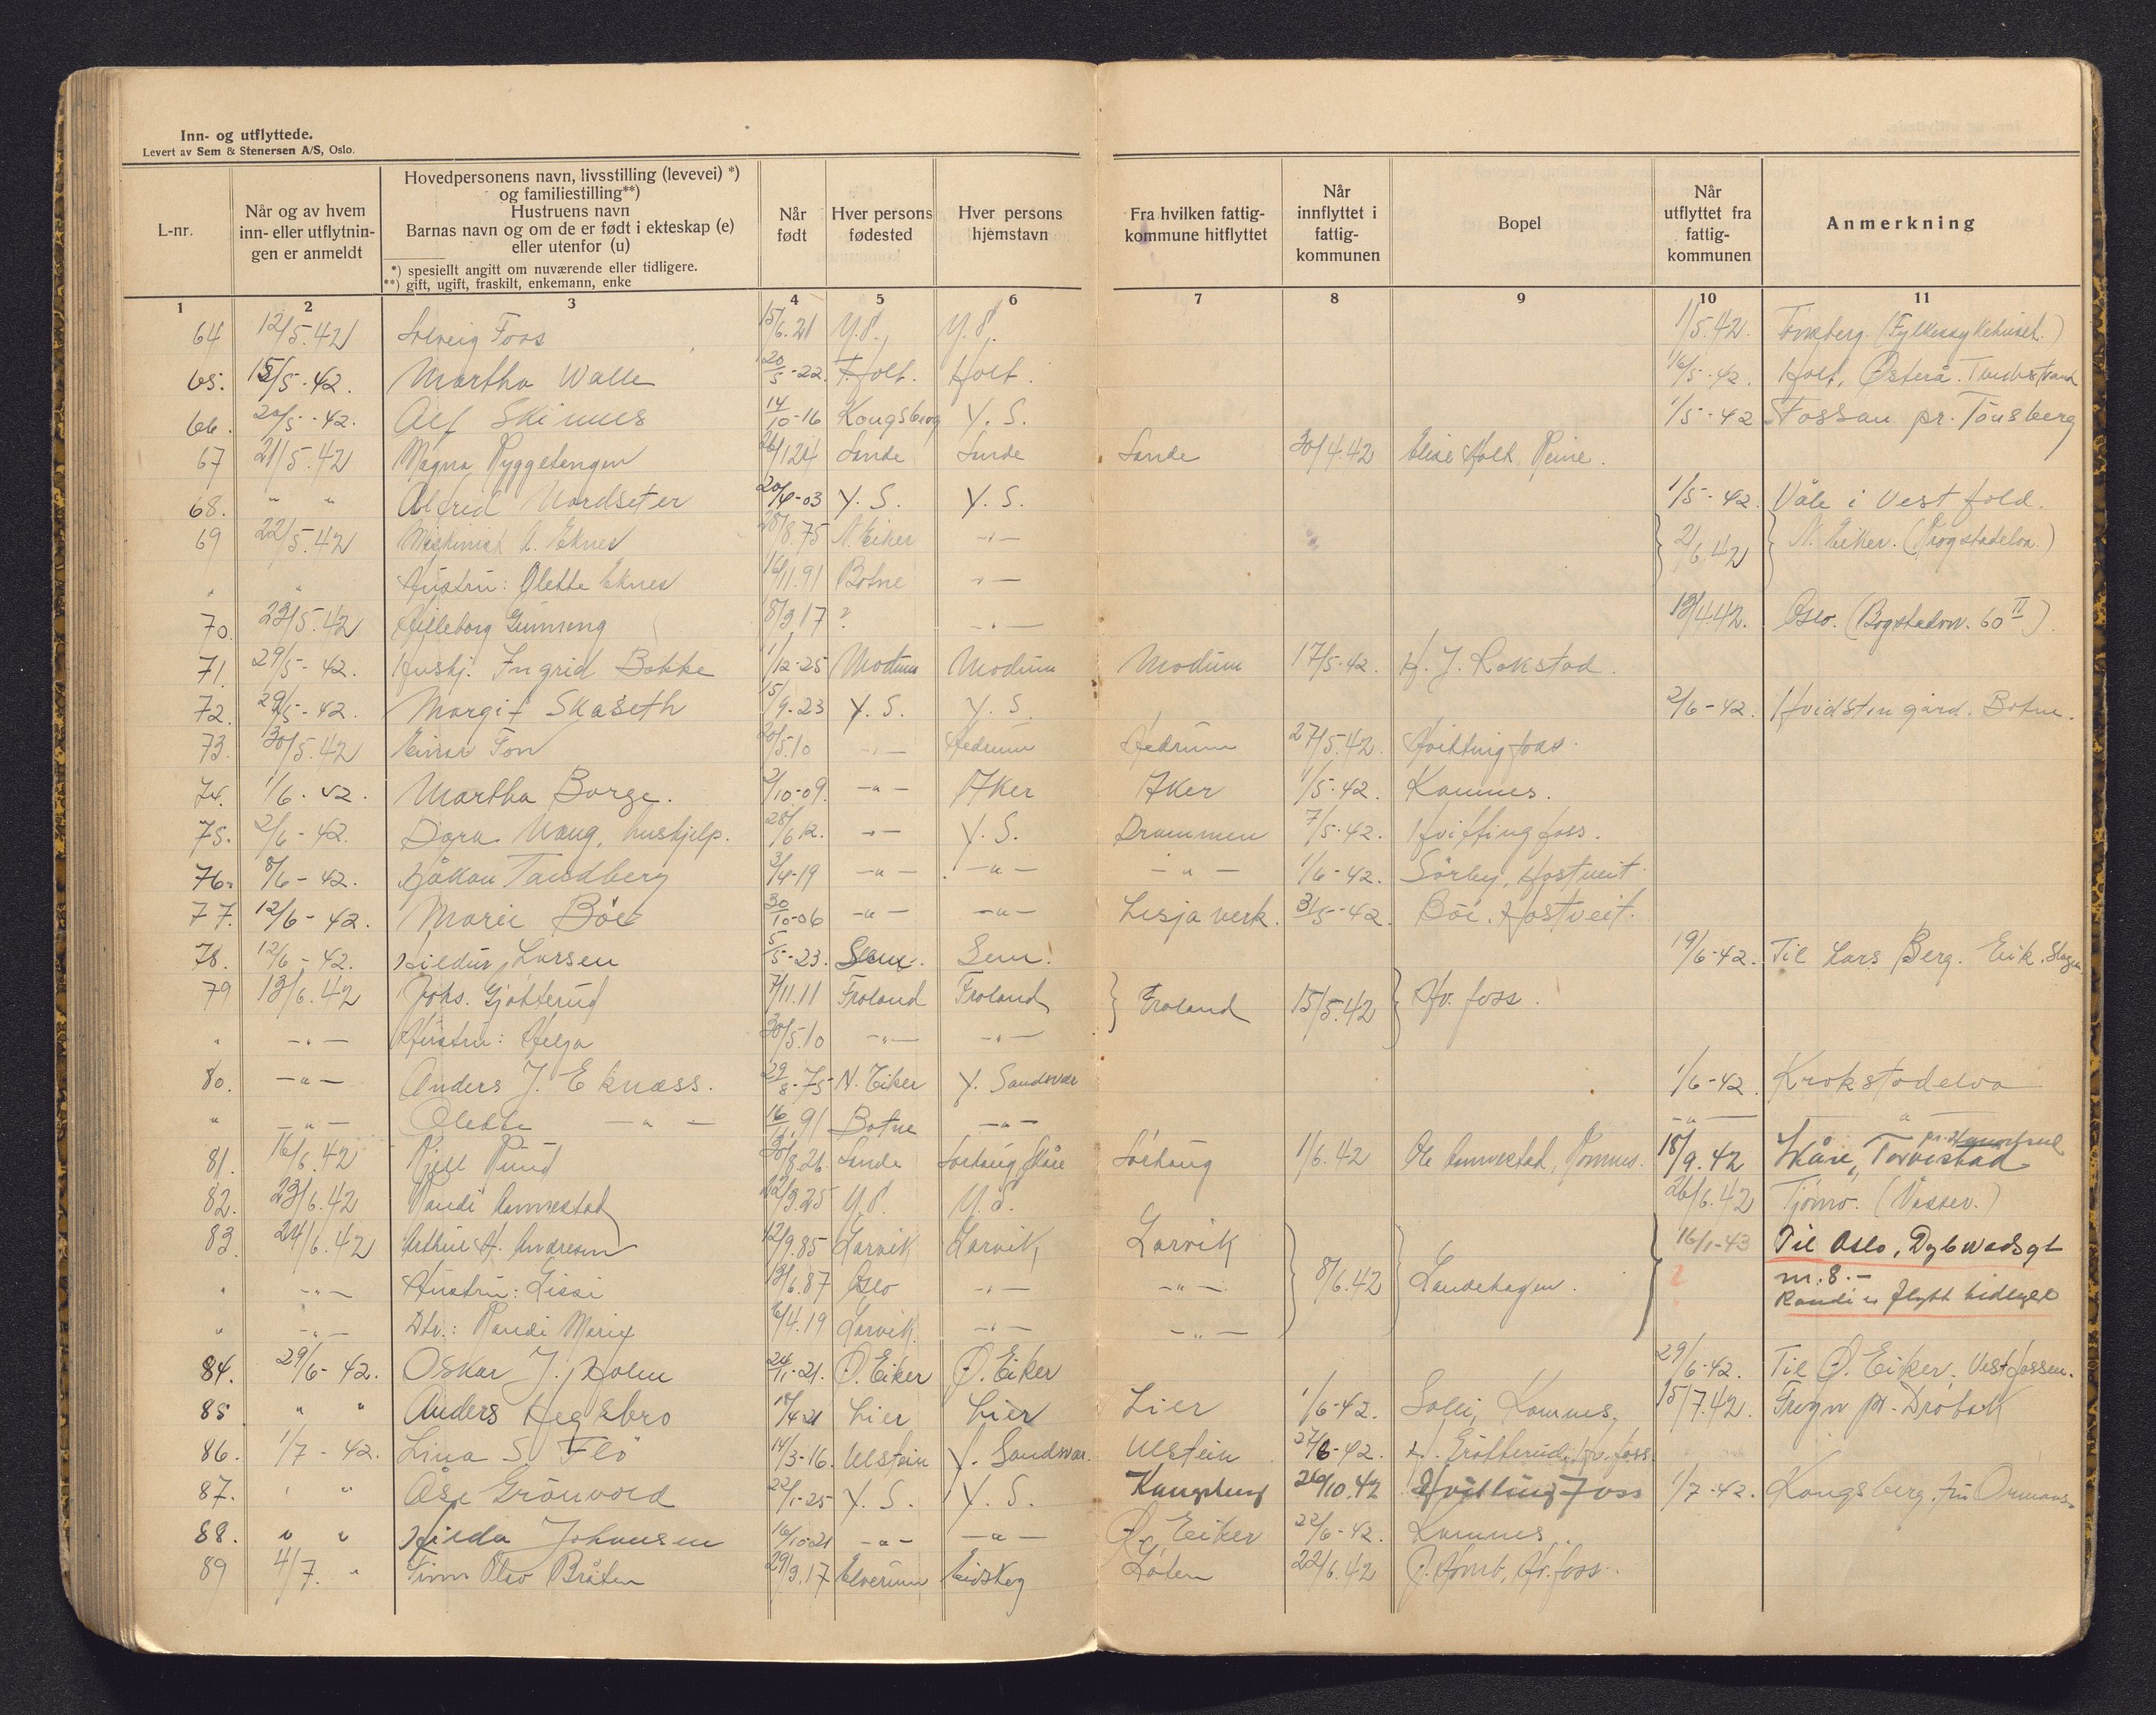 Inn- og utflyttede.
Levert av Sem & Stenersen A/S, Oslo.
L-nr.
Når og av hvem
inn- eller utflytnin-
gen er anmeldt
Hovedpersonens navn, livsstilling (levevei) *)
og familiestilling**)
Hustruens navn
Barnas navn og om de er født i ekteskap (e)
eller utenfor (u)
*) spesiellt angitt om nuværende eller tidligere.
**) gift, ugift, fraskilt, enkemann, enke
Når
født
Hver persons
fødested
Hver persons
hjemstavn
Fra hvilken fattig-
kommune hitflyttet
Når
innflyttet i
fattig-
kommunen
Bopel
Når
utflyttet fra
fattig-
kommunen
Anmerkning
1 2 3 4 5 6 7 8 9 10 11
64 12/5.42 Solveig Foss 15/6.21 Y.S. Y.S. 1/5.42. Tønsberg (Fylkessykehuset.)
65. 15/5-42. Martha Walle 20/5-22. Holt. Holt. 16/5-42. Holt, Østerå. Tvedestrand
66. 20/5-42. Alf Skinnes 14/10-16 Kongsberg Y.S. 1/5-42 Fossan pr. Tönsberg
67 21/5.42 Magna Ryggetangen 26/1 24 Sande Sande Sande 30/4.42 Elise Holt, Reine.
68. " " Alfred Nordseter 20/4-03 Y.S. Y.S. 1/5-42. Våle i Vestfold.
69 22/5.42 Maskinist A. Eknes 28/8.75 N. Eiker -"- 2/6.42 N. Eiker. (Krogstadelva.)
" " Hustru: Olette Eknes 16/11.91 Botne -"-
70. 23/5.42 Hilleborg Gunneng 8/3 17 ? -"- 13/4.42. Oslo. (Bogstadvn. 60 II)
71. 29/5-42. Hushj. Ingrid Bakke 1/12-25 Modum Modum Modum 17/5-42. H. J. Lokstad.
72. 29/5-42. Margit Skaseth 15/9-23 Y.S. Y.S. 2/6-42. Hvidsten gård. Botne.
73. 30/5.42 Einar Fon 20/5.10 -"- Hedrum Hedrum 27/5.42. Hvittingfoss.
74. 1/6.42. Martha Borge. 2/10-09. -"- Aker Aker 1/5-42. Komnes.
75. 2/6-42. Dora Haug, hushjelp. 28/6 12. -"- Y.S. Drammen 7/5-42. Hvittingfoss.
76. 8/6-42. Håkon Tandberg 3/4-19 -"- -"- -"- 1/6-42. Sörby, Hostveit.
77. 12/6-42. Marie Böe 30/10-06 -"- -"- Lesja verk. 31/5-42. Böe, Hostveit.
78. 12/6-42. Hildur Larsen 5/5-23. Sem. Sem. 19/6-42. Til Lars Berg. Eik. Slagen
79 13/6.42 Johs. Gjötterud 7/11.11 Froland Froland Froland 15/5.42 Hv. foss.
" -"- Hustru: Helga 30/5.10 -"- -"-
80. -"- Anders J. Eknæss. 29/8-75 N. Eiker Y. Sandsvær 1/6-42. Krokstadelva
" -"- Olette -"- 16/11.91 Botne -"- -"- "
81. 16/6.42 Kjell Rund 30/8.26. Sande Sørhaug, Skåre Sørhaug 1/6.42 Ole Amnestad, Komnes. 18/9.42 Skåre, Torvestad
82. 23/6.42 Randi Amnestad 22/3.25 Y.S. Y.S. 26/6.42 Tjømø. (Vasser.)
83. 24/6.42 Arthur A. Andresen 12/9.85 Larvik Larvik Larvik 8/6.42 Landehagen. 16/1-43 Til Oslo, Dybwadsgt
" -"- Hustru: Lissi 13/6.87 Oslo -"- -"- nr. 8.-
Randi er flytt tidligere
" -"- Dtr.: Randi Marie 16/4.19 Larvik. -"- -"-
84. 29/6-42. Oskar J. Holm 24/11-21. Ø. Eiker Ø. Eiker 29/6-42. Til Ø. Eiker, Vestfossen.
85 " " Anders Hegsbro 18/4-21 Lier Lier Lier 1/6-42. Solli, Komnes. 15/7.42. Frogn pr. Drøbak
86. 1/7-42. Lina S. Flö 14/3-16. Ulstein Y. Sandsvær. Ulstein 27/6-42. H. Grötterud, Hv. foss.
87. " " Åse Grönvold 22/1-25 Y.S. Y.S. Kongsberg 26/10.42 Hvittingfoss 1/7-42. Kongsberg. fru
88. " " Hilda Johansen 16/10-21 -"- -"- Ø. Eiker 22/6-42. Komnes.
89 4/7. " Finn Olav Bråten 29/3.17 Elverum Eidskog Løten 22/6.42 Hv. foss.